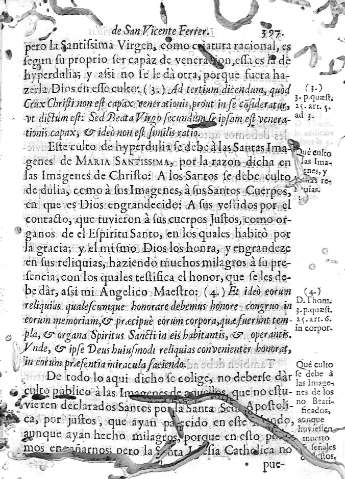 de San Vicente Ferrer. 397.
pero la Santissima Virgen, como criatura racional, es
segun su proprio ser capàz de veneracion, essa es la de
hyperdulia; y assi no se le dà otra, porque fuera ha-
zerla Dios en esse culto: (3.) Ad tertium dicendum, quòd
Crux Christi non est capax venerationis, prout in se consideratur,
ut dictum est: Sed Beata Virgo secundum se ipsam est venera-
tionis capax, & ideò non est similis ratio.
Este culto de hyperdulia se debe à las Santas Ima
genes de MARIA SANTISSIMA, por la razon dicha en
las Imagenes de Christo: A los Santos se debe culto
de dulia, como à sus Imagenes, à sus Santos Cuerpos,
en que es Dios engrandecido: A sus vestidos por el
contacto, que tuvieron à sus cuerpos Justos, como or-
ganos de el Espiritu Santo, en los quales habitò por
la gracia; y el mismo Dios los honra, y engrandeze
en sus reliquias, haziendo muchos milagros à su pre-
sencia, con los quales testifica el honor, que se les de-
be dàr, assi mi Angelico Maestro: (4.) Et ideò eorum
reliquias qualescumque honorare debemus honore congruo in
eorum memoriam, & præcipuè eorum corpora, quæ fuerunt tem-
pla, & organa Spiritus Sancti in eis habitantis, & operantis.
Unde, & ipse Deus huiusmodi reliquias convenienter honorat,
in eorum præsentia miracula faciendo.
De todo lo aqui dicho se colige, no deberse dàr
culto publico à las Imagenes de aquellos, que no estu-
vieren declarados Santos por la Santa Sede Apostoli-
ca, por justos, que ayan parecido en este mundo,
aunque ayan hecho milagros, porque en esto pode-
mos engañarnos; pero la Santa Iglesia Catholica no
pue-
(3.)
3. p. quæst.
25. art. 5.
ad 3.
Què culto
las Ima-
genes, y
re-
quias.
(4.)
D. Thom.
3. p. quæst.
25. art. 6.
in corpor.
Què culto
se debe à
las Image-
nes de los
no Beati-
ficados,
aunque
huviessen
muerto
señales